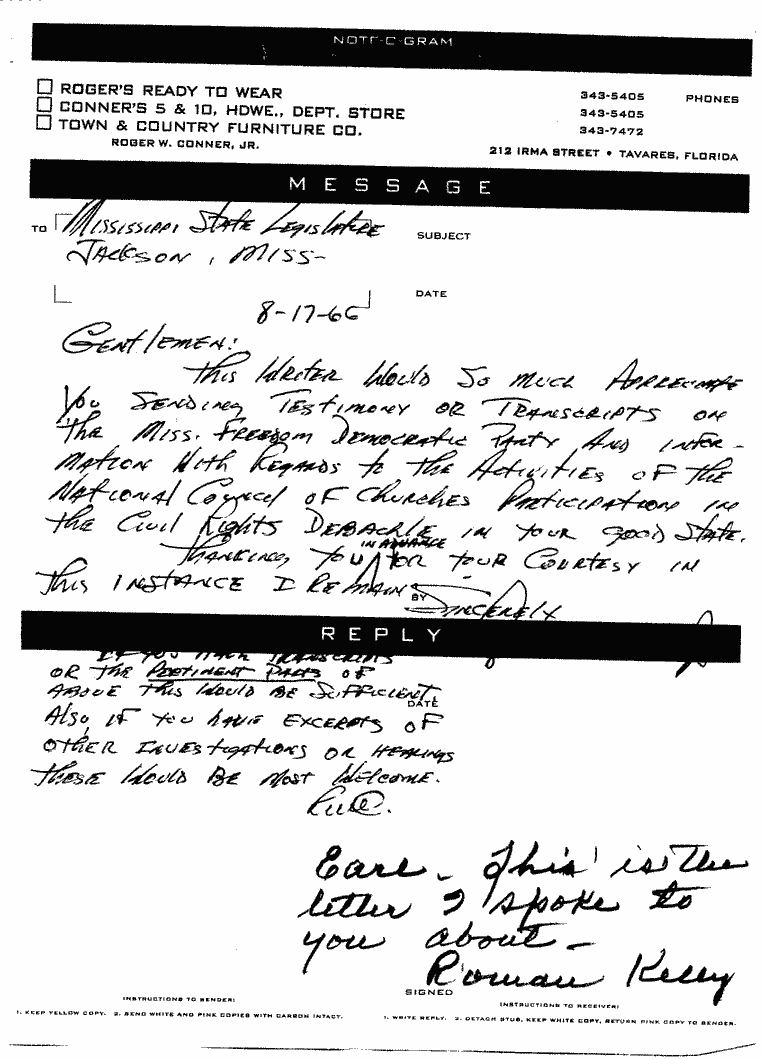 NOTE-O-GRAM
☐ ROGER'S READY TO WEAR 343-5405 PHONES
☐ CONNER'S 5 & 10, HDWE., DEPT. STORE 343-5405
☐ TOWN & COUNTRY FURNITURE CO. 343-7472
ROGER W. CONNER, JR. 212 IRMA STREET • TAVARES, FLORIDA
MESSAGE
TO Mississippi State Legislature SUBJECT
Jackson, Miss-
DATE
8-17-66
Gentlemen:
This Writer Would So Much Appreciate
You Sending Testimony or Transcripts on
the Miss. Freedom Democratic Party And infor-
mation With Regards to the Activities of the
National Council of Churches Participation in
the Civil Rights Debackle in your good State.
Thanking you in advance for your Courtesy in
this instance I Remain
BY Sincerely
REPLY
If you have transcripts
or the Pertinent Parts of
above this would be sufficient.
DATE
Also, if you have excerpts of
other Investigations or hearings
these would be most welcome.
Earl - This is the
letter I spoke to
you about -
Roman Kelly
SIGNED
INSTRUCTIONS TO SENDER:
1. KEEP YELLOW COPY. 2. SEND WHITE AND PINK COPIES WITH CARBON INTACT.
INSTRUCTIONS TO RECEIVER:
1. WRITE REPLY. 2. DETACH STUB, KEEP WHITE COPY, RETURN PINK COPY TO SENDER.